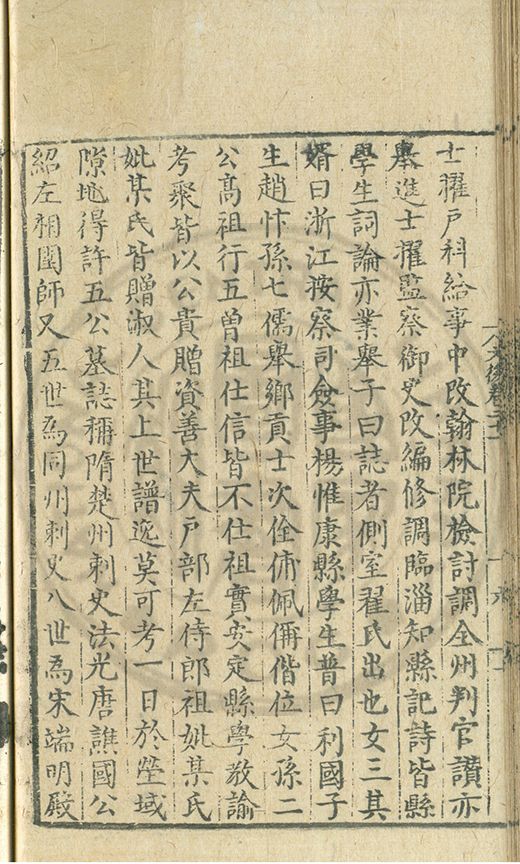 士擢戶科給事中改翰林院檢討調全州判官讚亦
舉進士擢監察御史改編修調臨淄知縣記詩皆縣
學生詞論亦業舉子曰誌者側室翟氏出也女三其
壻曰浙江按察司僉事楊惟康縣學生普曰利國子
生趙忭孫七儒舉鄉貢士次佺俌佩儞偕位女孫二
公高祖行五曾祖仕信皆不仕祖實安定縣學教諭
考聚皆以公貴贈資善大夫戶部左侍郎祖妣某氏
妣某氏皆贈淑人其上世譜逸莫可考一日於塋域
隙地得許五公墓誌稱隋楚州刺史法光唐譙國公
紹左相圉師又五世為同州刺史八世為宋端明殿